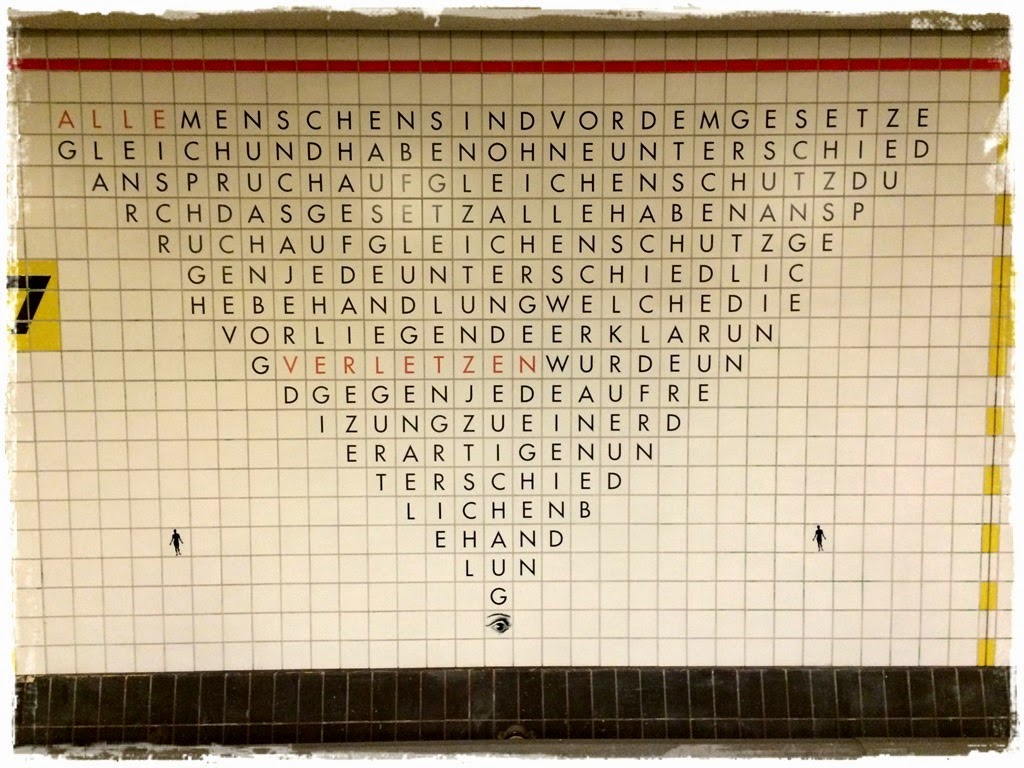 ALLEMENSCHENSINDVORDEMGESETZE
GLEICHUNDHABENOHNEUNTERSCHIED
ANSPRUCHAUFGLEICHENSCHUTZDU
RCHDASGESETZALLEHABENANSP
RUCHAUFGLEICHENSCHUTZGE
GENJEDEUNTERSCHIEDLIC
HEBEHANDLUNGWELCHEDIE
VORLIEGENDEERKLARUN
GVERLETZENWURDEUN
DGEGENJEDEAUFRE
IZUNGZUEINERD
ERARTIGENUN
TERSCHIED
LICHENB
EHAND
LUN
G
7